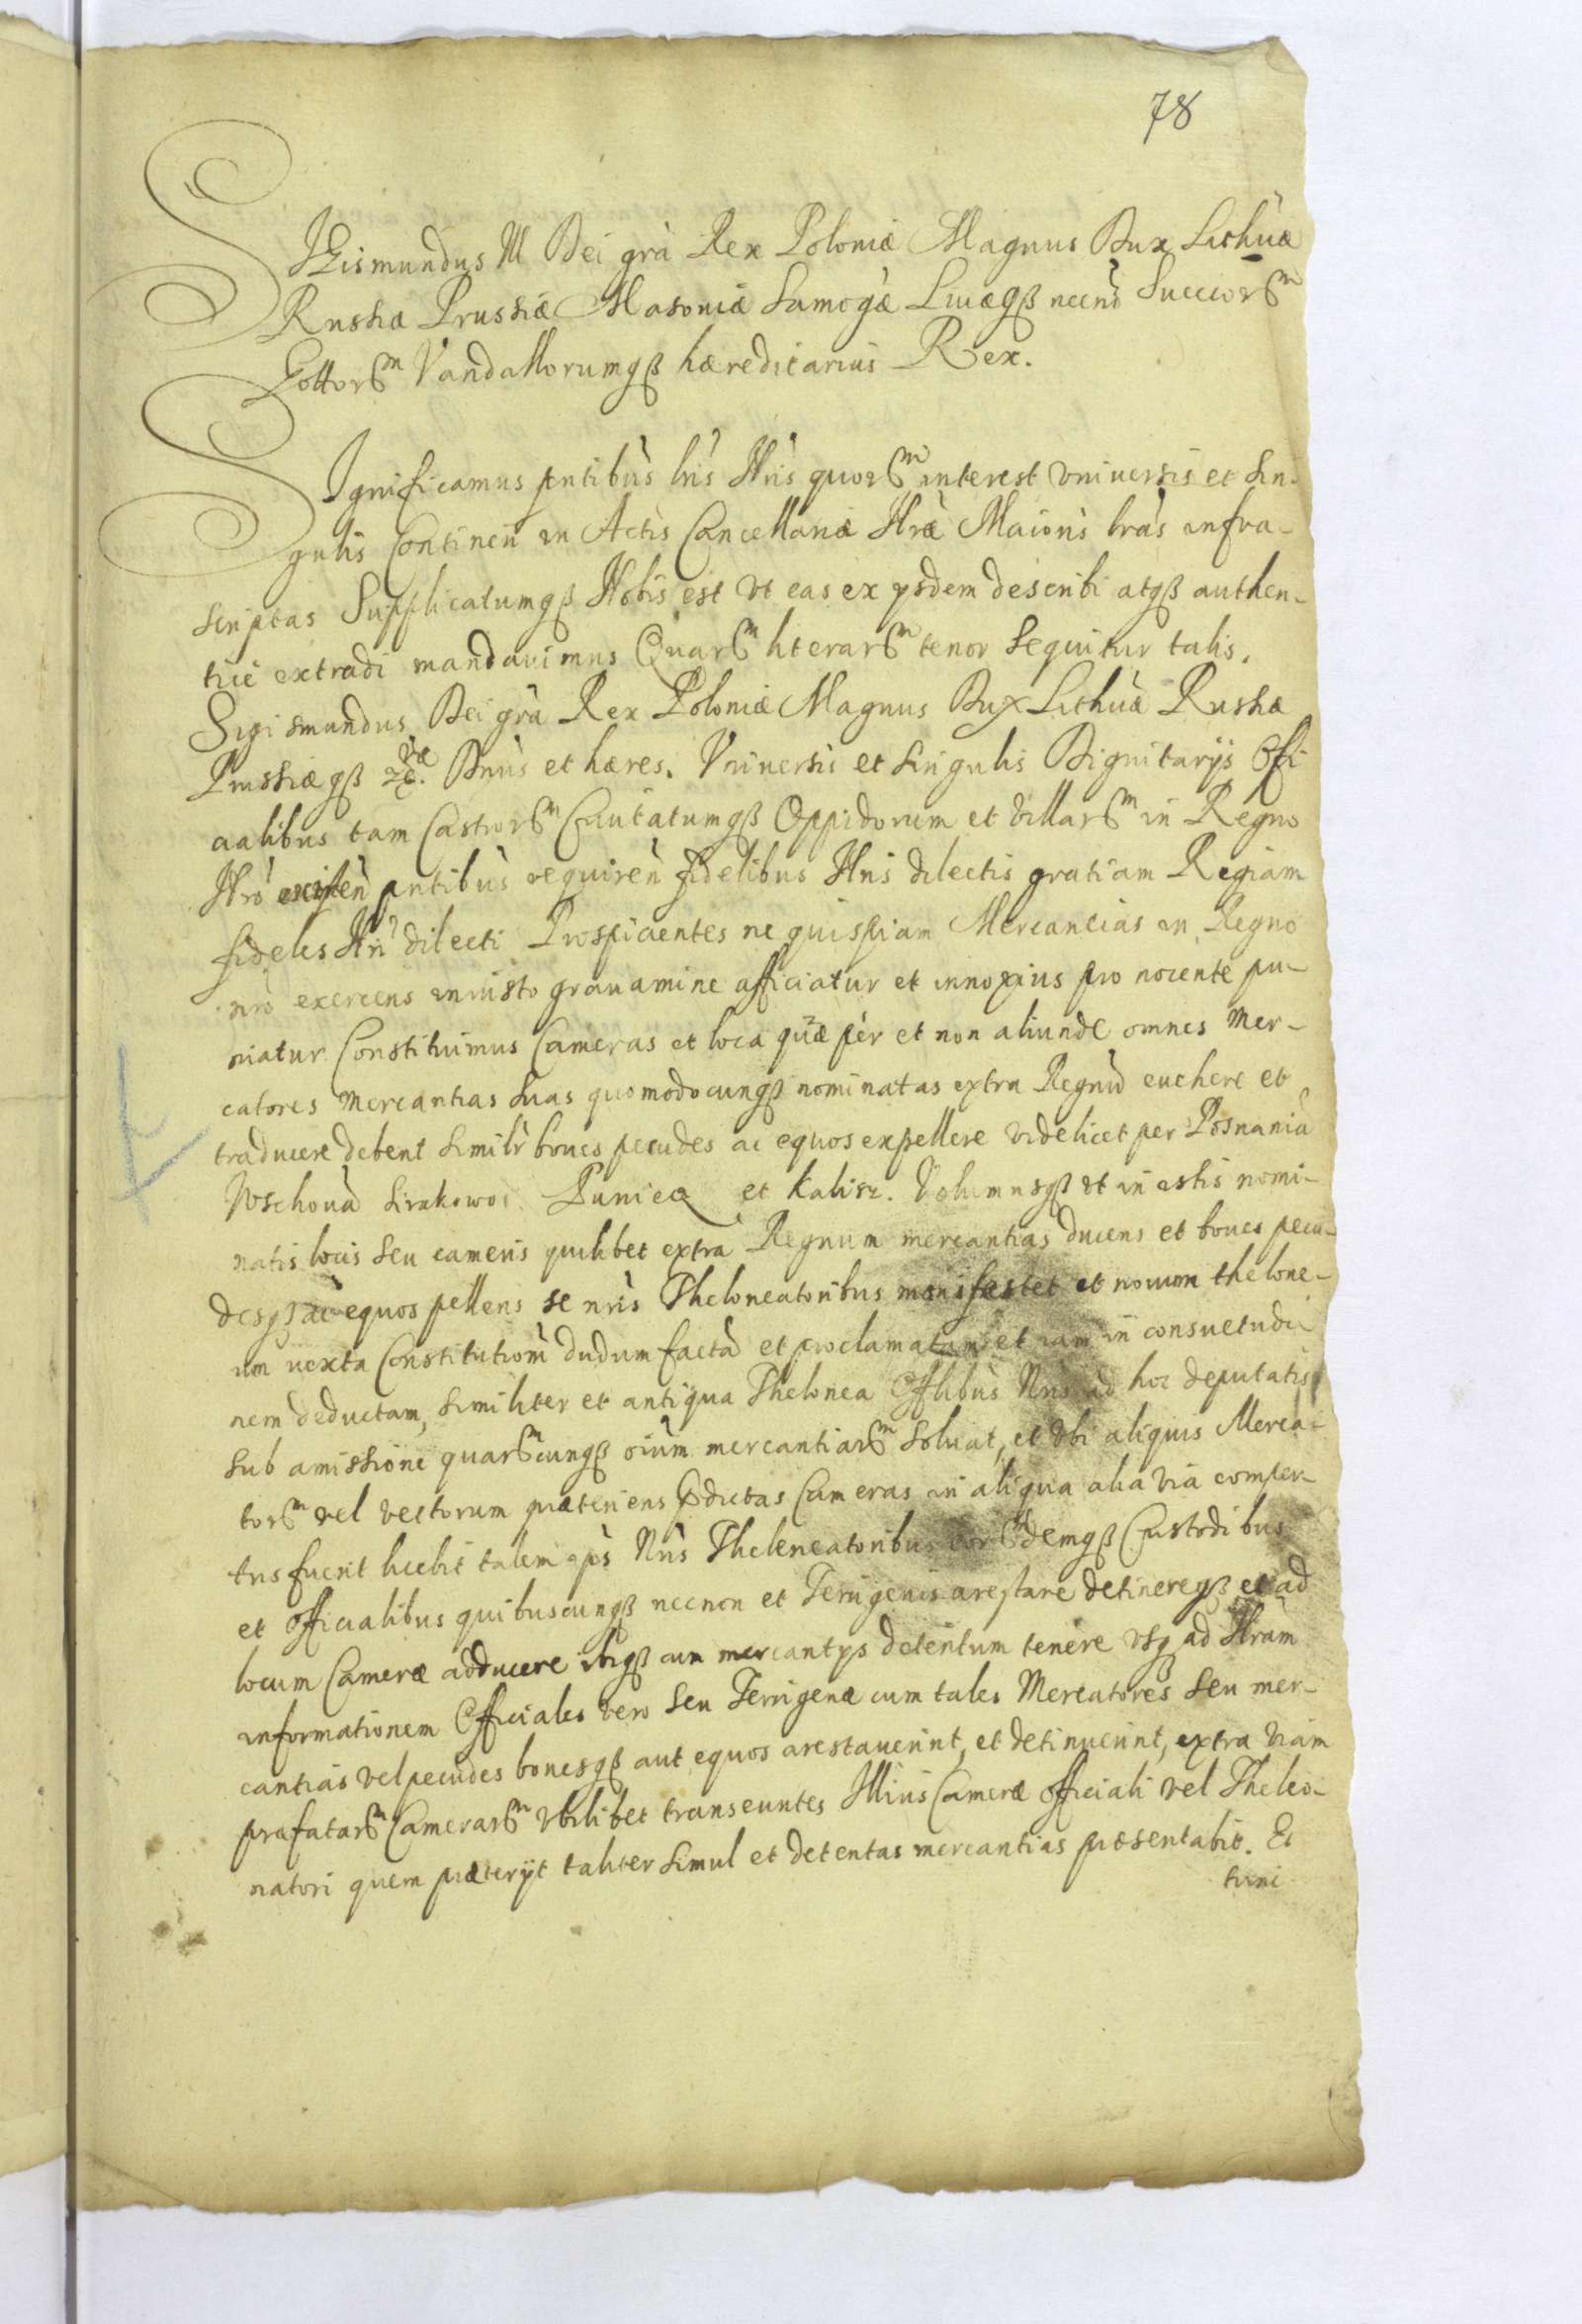 78
SIGismundus III Dei grà Rex Poloniæ Magnus Dux Lithùæ
Russiæ Prussiæ Masoviæ Samogæ Livæqß necnò Succorm
Gottorm Vandallorumqß hæreditarius Rex.
SIgnificamus pntibùs lris Nris quorm interest vniversis et sin-
gulis Contineri in Actis Cancellariæ Nræ Maioris lràs infra-
scriptas Supplicatumqß Nobis est vt eas ex ysdem describi atqß authen-
tice extradi mandavimus Quarm literarm tenor sequitur talis.
Sigismundus Dei grà Rex Poloniæ Magnus Dux Lithùæ Russiæ
Prussiæqß etc. Dnùs et hæres. Vniversis et singulis Dignitarijs Offi
cialibus tam Castrorm Civitatumqß Oppidorum et villarm in Regno
Nrò existeñ pntibùs requireñ fidelibus Nris dilectis gratiam Regiam
fideles Nri dilecti Prospicientes ne quispiam Mercancias in Regno
nrò exercens iniusto gravamine afficiatur et innoxius pro nocente pu-
niatur Constituimus Cameras et loca quæ per et non aliunde omnes Mer-
catores mercantias suas quomodocunqß nominatas extra Regnù evehere et
traducere debent similr boves pecudes ac equos expellere videlicet per Posnanià
Wschovà Sirakowo Puniec et Kalisz. Volumusqß vt in istis nomi-
natis locis seu cameris quilibet extra Regnum mercantias ducens et boves pecu-
desqß ac equos pellens se nris Theloneatoribus manifestet et novum thelone-
um iuxta Constitutionem dudum factà et proclamatam et iam in consuetudi-
nem deductam, similiter et antiqua Thelonea Offlibùs Nris ad hoc deputatis
sub amissione quarmcunqß oium mercantiarm solvat, et vbi aliquis Merca-
torm vel vectorum præteriens pdictas Cameras in aliqua alia via comper-
tus fuerit licebit talem ipsis Nris Theleneatoribus eormdemqß Custodibus
et officialibus quibuscunqß necnon et Terrigenis arestare detinereqß et ad
locum Cameræ adducere ibiqß cum mercantys detentum tenere vsq ad Nram
informationem Officiales vero seu Terrigenæ cum tales Mercatores seu mer-
cantias vel pecudes bovesqß aut equos arestaverint, et detinuerint, extra viam
præfatarm Camerarm vbilibet transeuntes Illius Cameræ officiali vel Theleo-
natori quem præteryt taliter simul et detentas mercantias præsentabit. Ei